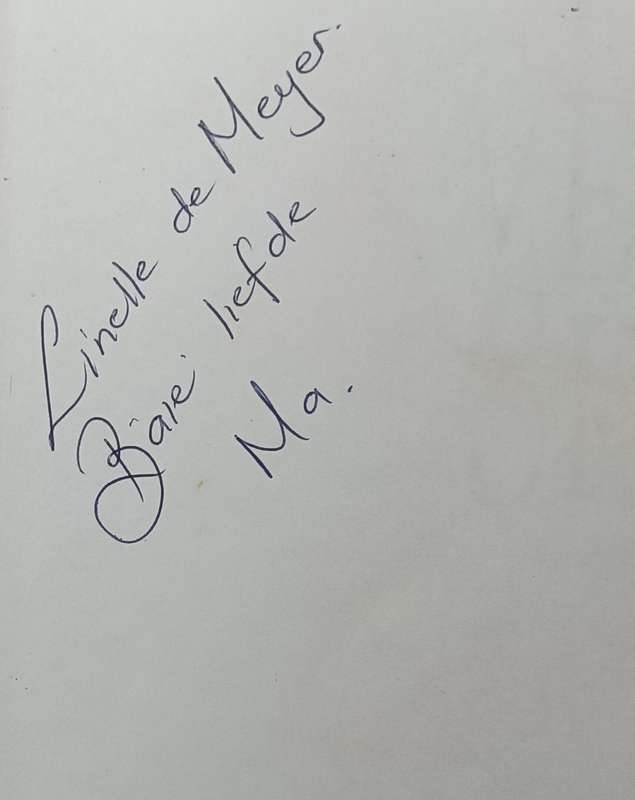 Linelle de Meyer.
Baie liefde
Ma.